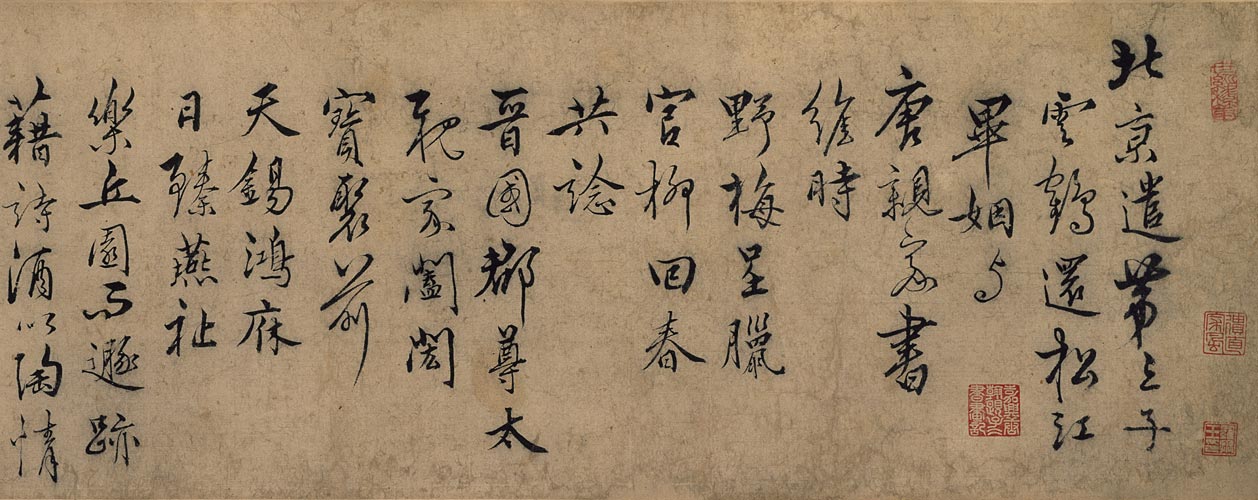 北京遣第三子
雲鶴還松江
畢姻与
唐親家書
維時
野梅呈臘
宫柳回春
共諗
晉國郡尊太
親家闔閎
寶聚前
天錫鴻庥
日臻燕祉
樂丘園而遯跡
藉詩酒以陶情